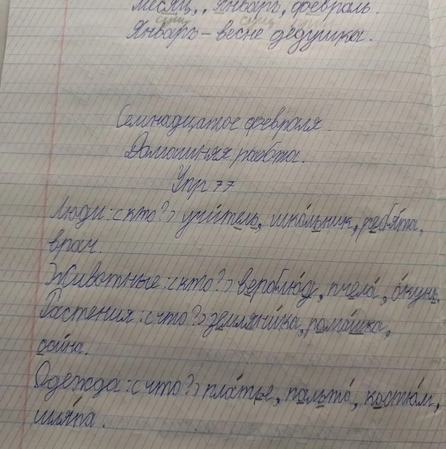 месяц, январь, февраль.
Январь – весне дедушка.
Семнадцатое февраля.
Домашняя работа.
Упр 77
Люди: <кто?> учитель, школьник, ребята,
врач.
Животные: <кто?> верблюд, пчела, окунь.
Растения: <что?> земляника, ромашка,
Одежда: <что?> платье, пальто, костюм,
шляпа.